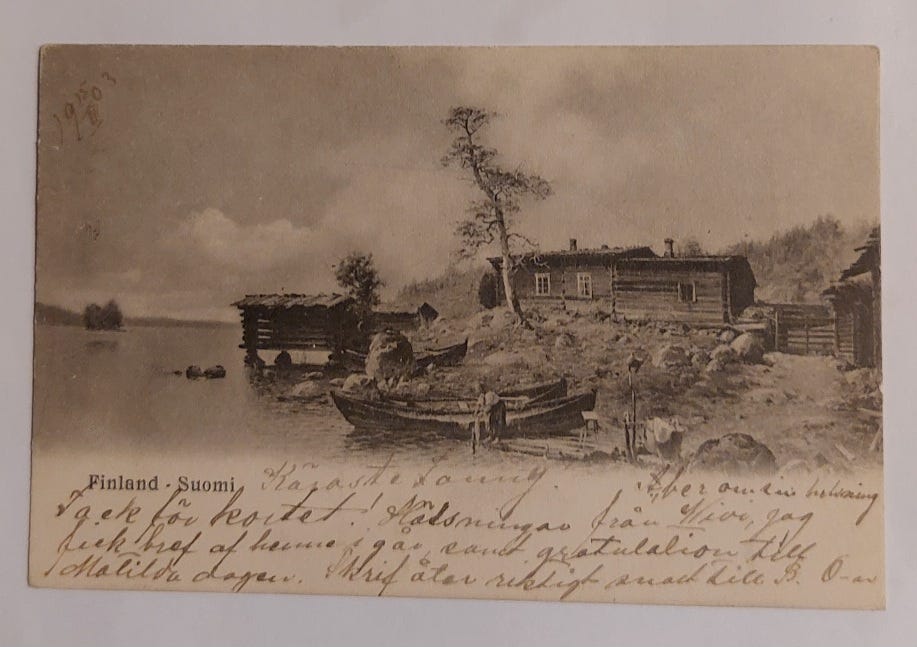 19 15/III 03
Finland - Suomi
Käraste Fanny!
Tack för kortet! Hälsningar från Vivi, jag
fick bref af henne i går, samt gratulation till
Matilda dagen. Skrif åter riktigt snart till B. O-ar